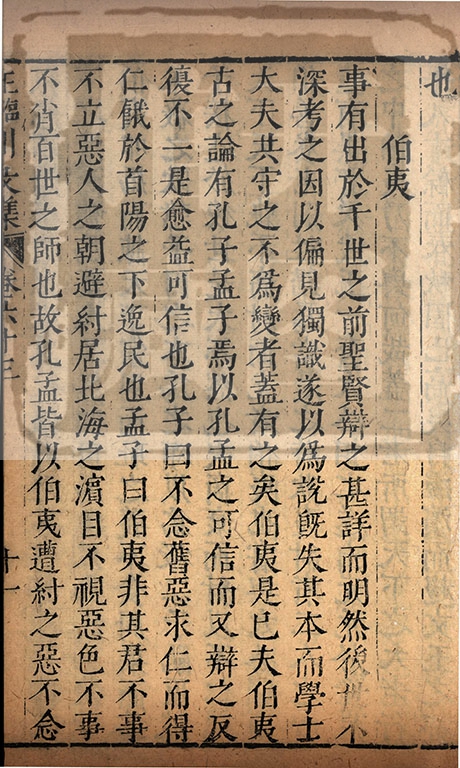 也
伯夷
事有出於千世之前聖賢辯之甚詳而明然後世不
深考之因以偏見獨識遂以為說旣失其本而學士
大夫共守之不為變者蓋有之矣伯夷是已夫伯夷
古之論有孔子孟子焉以孔孟之可信而又辯之反
復不一是愈益可信也孔子曰不念舊惡求仁而得
仁餓於首陽之下逸民也孟子曰伯夷非其君不事
不立惡人之朝避紂居北海之濱目不視惡色不事
不肖百世之師也故孔孟皆以伯夷遭紂之惡不念
王臨川文集 卷六十三 十一